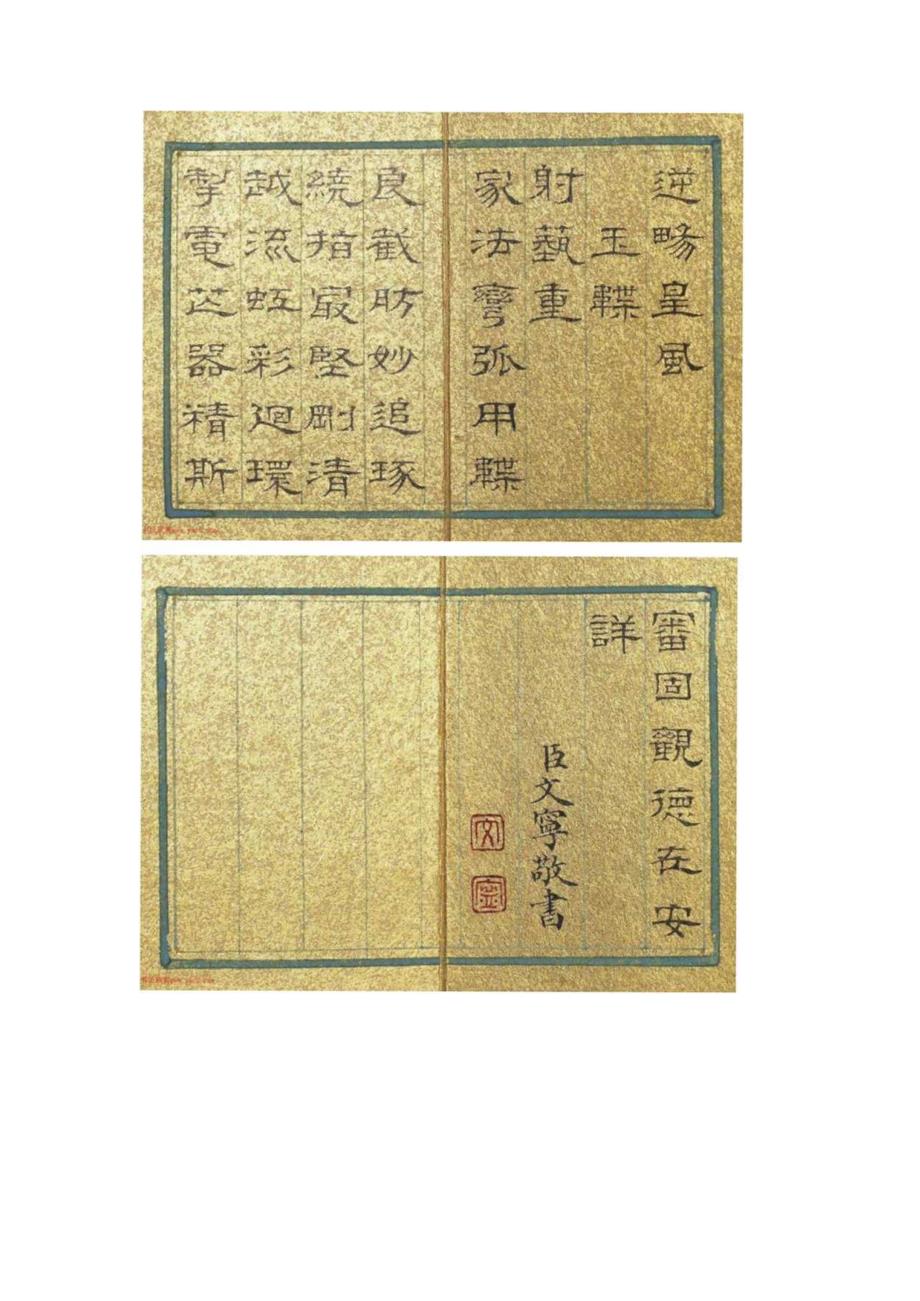 逆畼皇風
玉韘
射藝重
家法彎弧用韘
良截肪妙追琢
繞指最堅剛清
越流虹彩迴環
掣電芒器精斯
審固觀德在安
詳
臣文寧敬書
文
寧